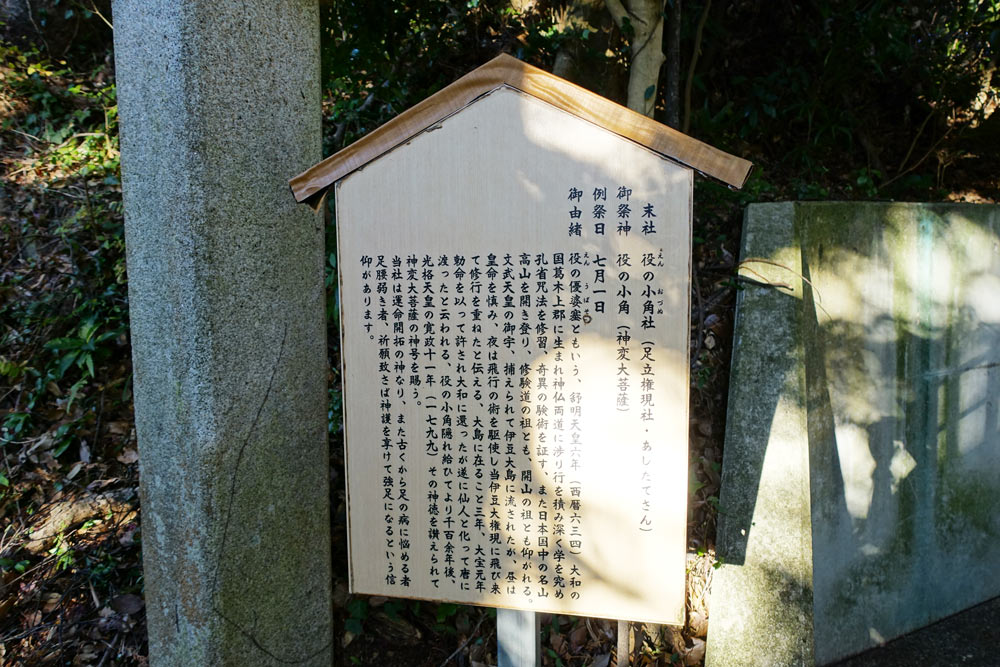 末社 役の小角社(足立権現社・あしたてさん)
えん おづぬ
御祭神 役の小角(神変大菩薩)
例祭日 七月一日
御由緒 役の優婆塞ともいう、舒明天皇六年(西暦六三四)大和の
えん うばそく
国葛木上郡に生まれ神仏両道に渉り行を積み深く学を究め
孔雀咒法を修習、奇異の験術を証す、また日本国中の名山
高山を開き登り、修験道の祖とも、開山の祖とも仰がれる。
文武天皇の御宇、捕えられて伊豆大島に流されたが、昼は
皇命を慎み、夜は飛行の術を駆使し当伊豆大権現に飛び来
て修行を重ねたと伝える、大島に在ること三年、大宝元年
勅命を以って許され大和に還ったが遂に仙人と化って唐に
渡ったと云われる、役の小角隠れ給ひてより千百余年後、
光格天皇の寛政十一年(一七九九)その神徳を讃えられて
神変大菩薩の神号を賜う。
当社は運命開拓の神なり、また古くから足の病に悩める者
足腰弱き者、祈願致さば神護を享けて強足になるという信
仰があります。